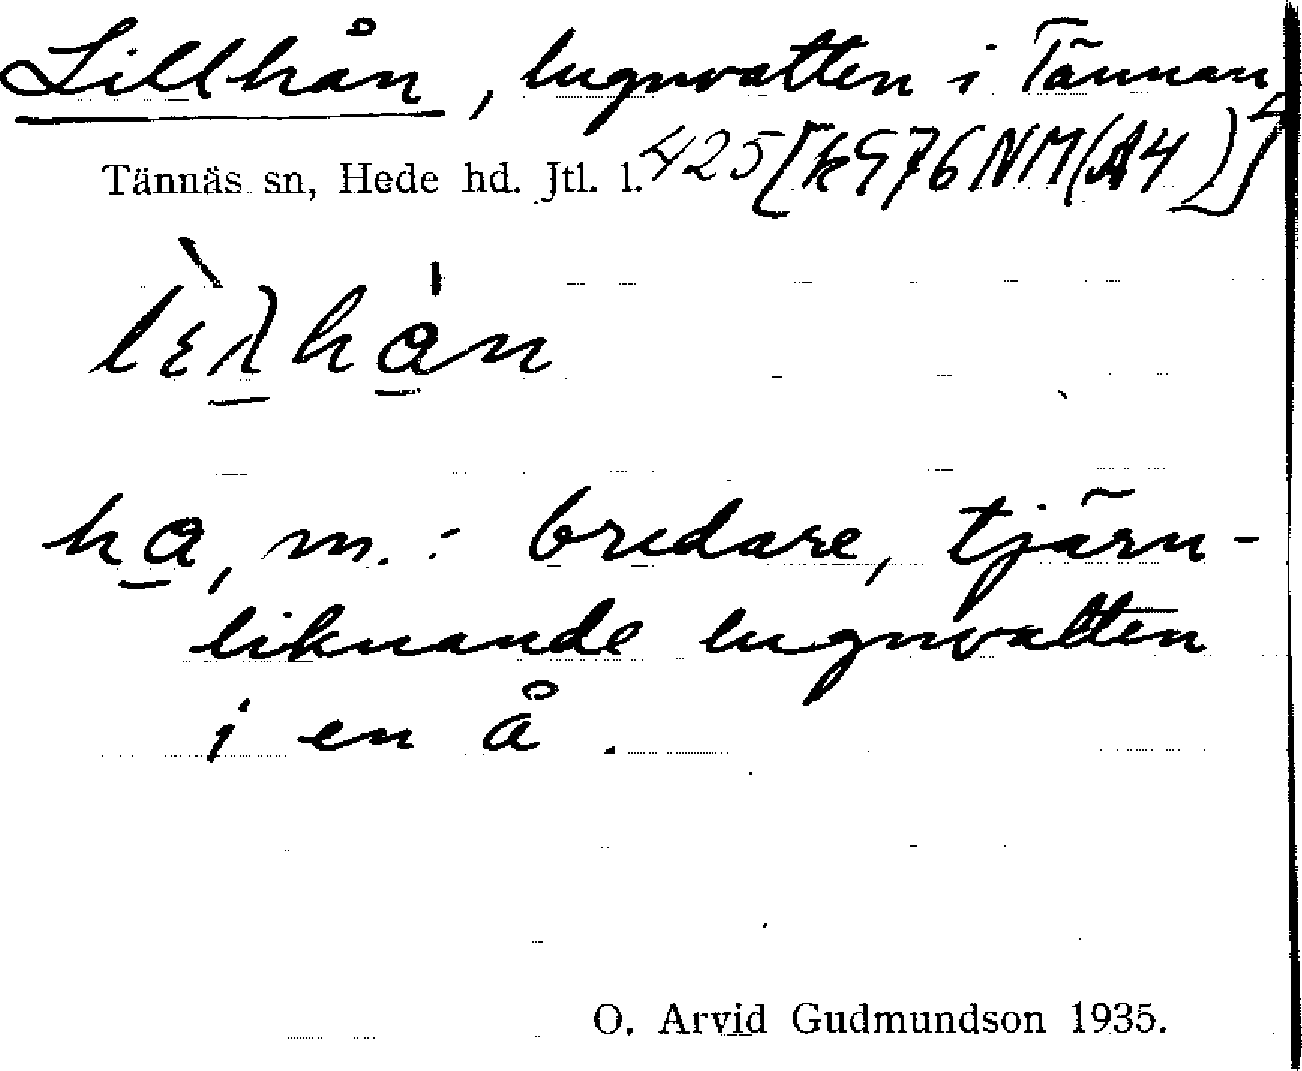 Lillhån, lugnvatten i Tännan,
Tännäs sn, Hede hd. Jtl. l. 425
ha, m.: bredare, tjärn-
liknande lugnvatten
i en å.
O. Arvid Gudmundson 1935.